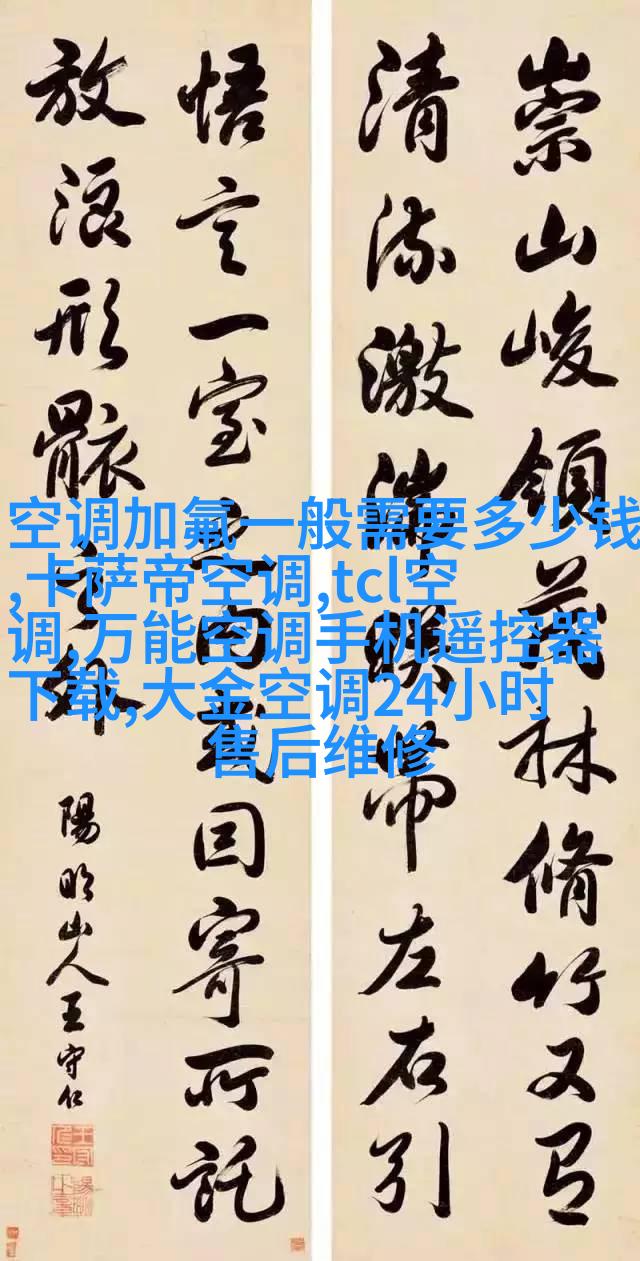 崇山峻領茂林脩竹又有
清流激湍暎帶左右引
悟言一室之内或因寄所託
放浪形骸之外
陽明山人王守仁
空调加氟一般需要多少钱
,卡萨帝空调,tcl空
调,万能空调手机遥控器
下载,大金空调24小时
售后维修